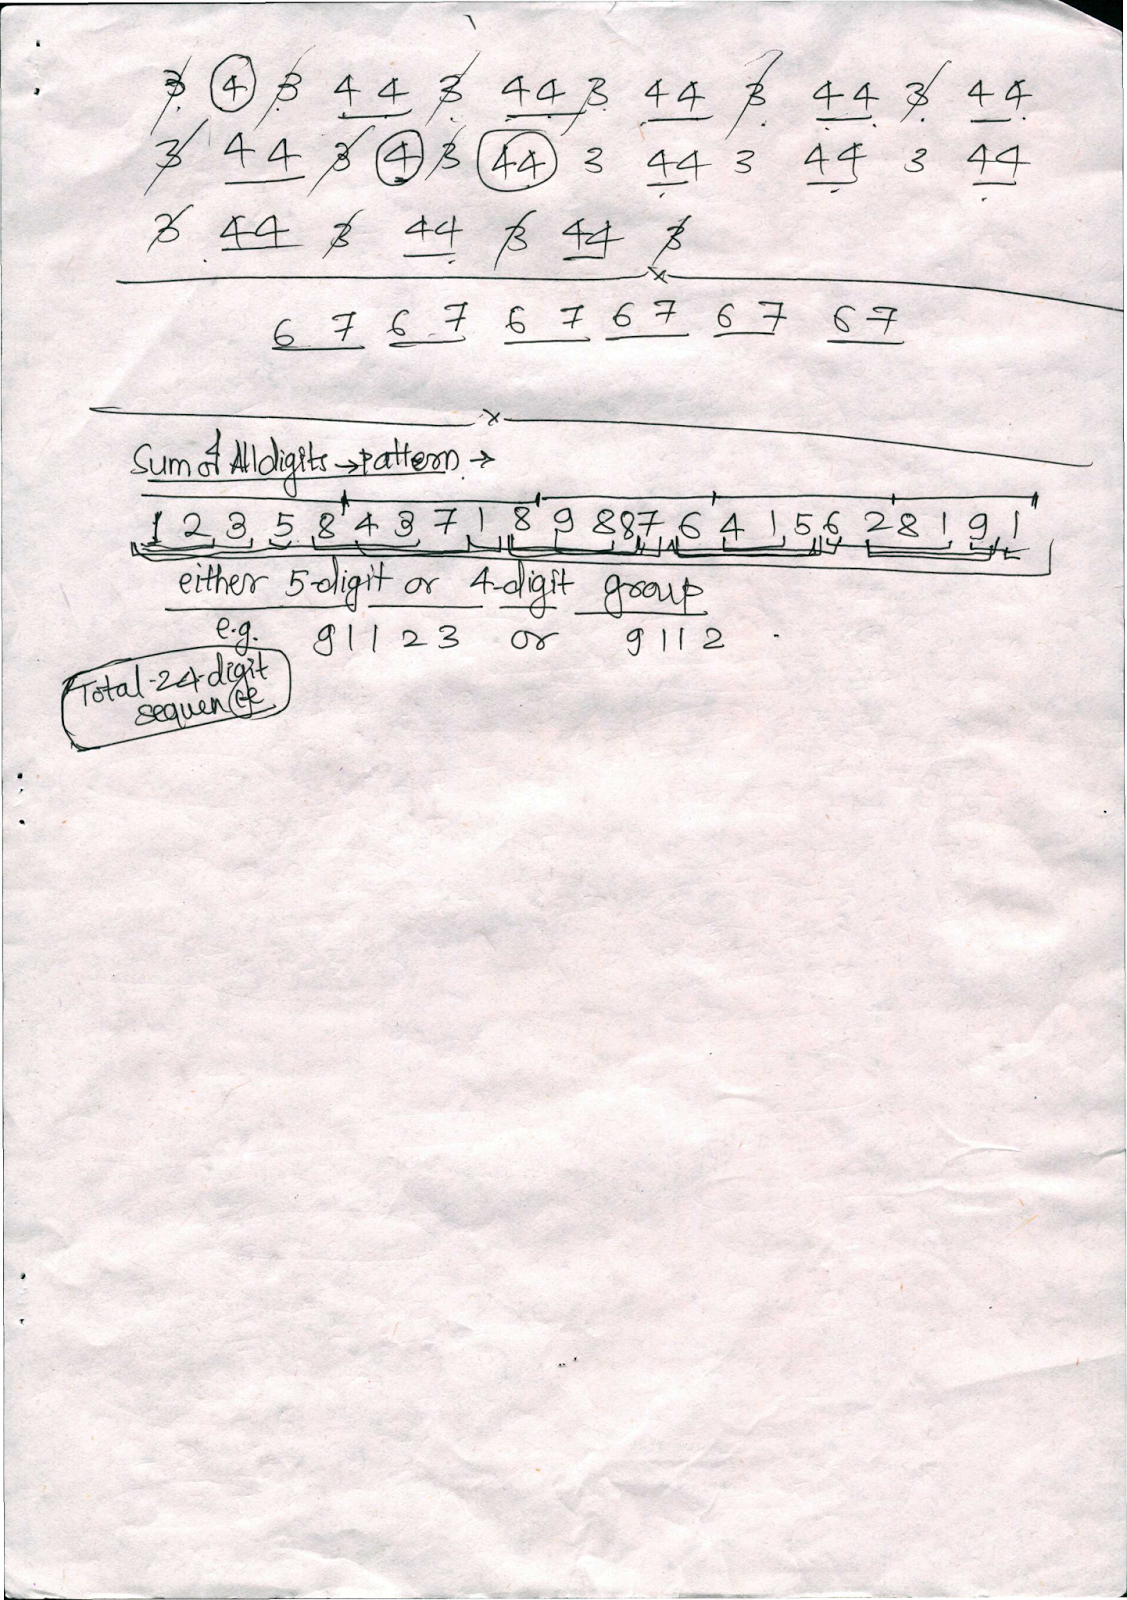 3 4 3 44 3 44 3 44 3 44 3 44
3 44 3 4 3 44 3 44 3 44 3 44
3 44 3 44 3 44 3
6 7 6 7 6 7 6 7 6 7 6 7
Sum of All digits → pattern →
1 2 3 5 8 4 3 7 1 8 9 8 8 7 6 4 1 5 6 2 8 1 9 1
either 5-digit or 4-digit group
e.g. 9 1 1 2 3 or 9 1 1 2
Total-24-digit
sequence